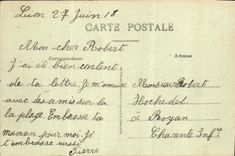 Luon 27 Juin 18
CARTE POSTALE
Mon cher Robert
Correspondance
Adresse
J'ai été bien content
de ta lettre Je m'amuse
avec des amas sur la
la plage Embrasse ta
maman pour moi. Je
t'embrasse aussi
Pierre
Monsieur Robert
Hochedel
à Royan
Charente Infre